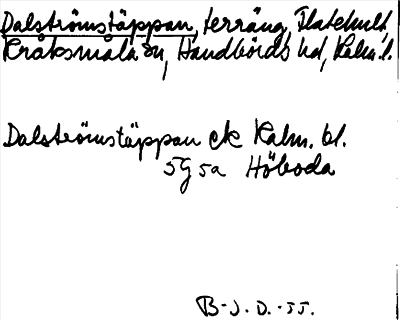 Dalströmstäppan, terräng, Flatehult
Kråksmåla sn, Handbörds hd, Kalm. l.
Dalströmstäppan ek Kalm. bl.
5G 5a Höboda
B-J. D. -55.